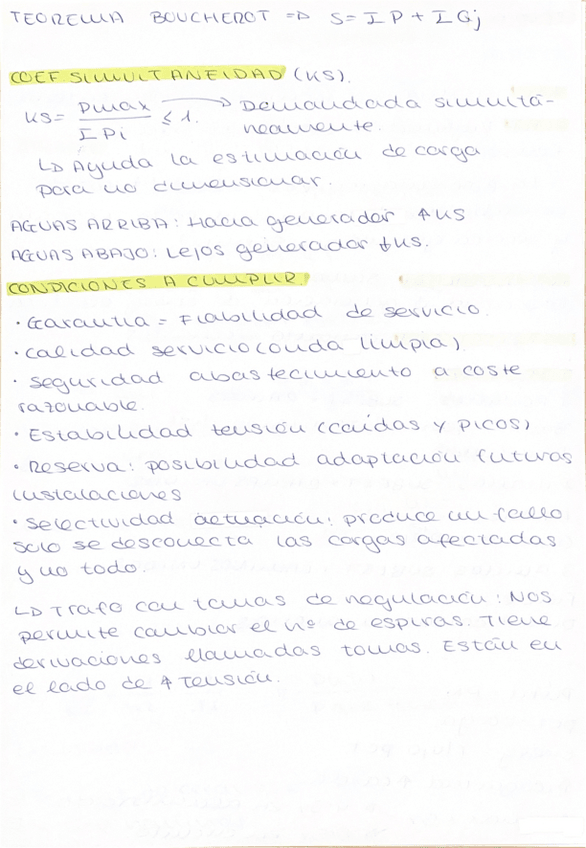 TEOREMA BOUCHEROT => S= ΣP + ΣQj
COEF SIMULTANEIDAD (KS).
KS= Pmax / ΣPi ≤ 1. → Demandada simultá-
neamente.
↳ Ayuda la estimación de carga
para no dimensionar.
AGUAS ARRIBA: Hacia generador ↑KS
AGUAS ABAJO: Lejos generador ↓KS.
CONDICIONES A CUMPLIR.
· Garantía = Fiabilidad de servicio.
· calidad servicio (onda limpia).
· seguridad abastecimiento a coste
razonable.
· Estabilidad tensión (caídas y picos)
· Reserva: posibilidad adaptación futuras
instalaciones
· Selectividad actuación: produce un fallo
solo se desconecta las cargas afectadas
y no todo.
↳ Trafo con tomas de regulación: Nos
permite cambiar el nº de espiras. Tiene
derivaciones llamadas tomas. Están en
el lado de ↑ Tensión.